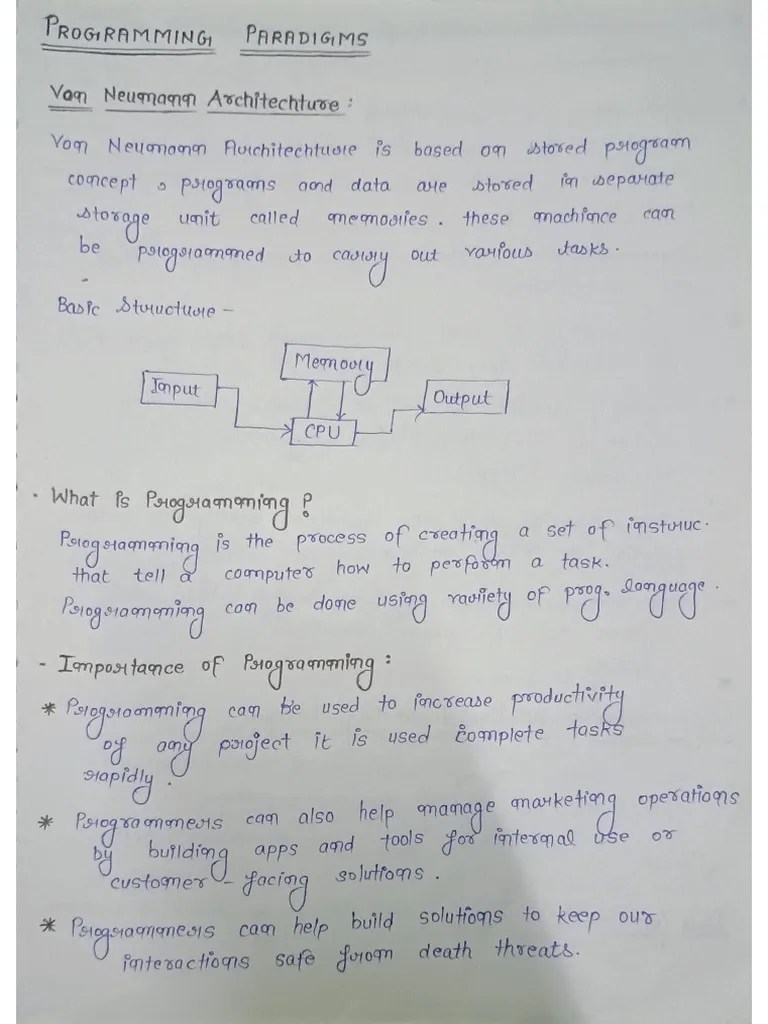 PROGRAMMING PARADIGMS
Von Neumann Architechture :
Von Neumann Architechture is based on stored program
concept , programs and data are stored in separate
storage unit called memories . these machince can
be programmed to carry out various tasks .
Basic Structure –
Memory
Input
Output
CPU
· What is Programming ?
Programming is the process of creating a set of instruc.
that tell a computer how to perform a task.
Programming can be done using variety of prog. language .
- Importance of Programming :
* Programming can be used to increase productivity
of any project it is used complete tasks
rapidly .
* Programmers can also help manage marketing operations
by building apps and tools for internal use or
customer - facing solutions .
* Programmers can help build solutions to keep our
interactions safe from death threats.